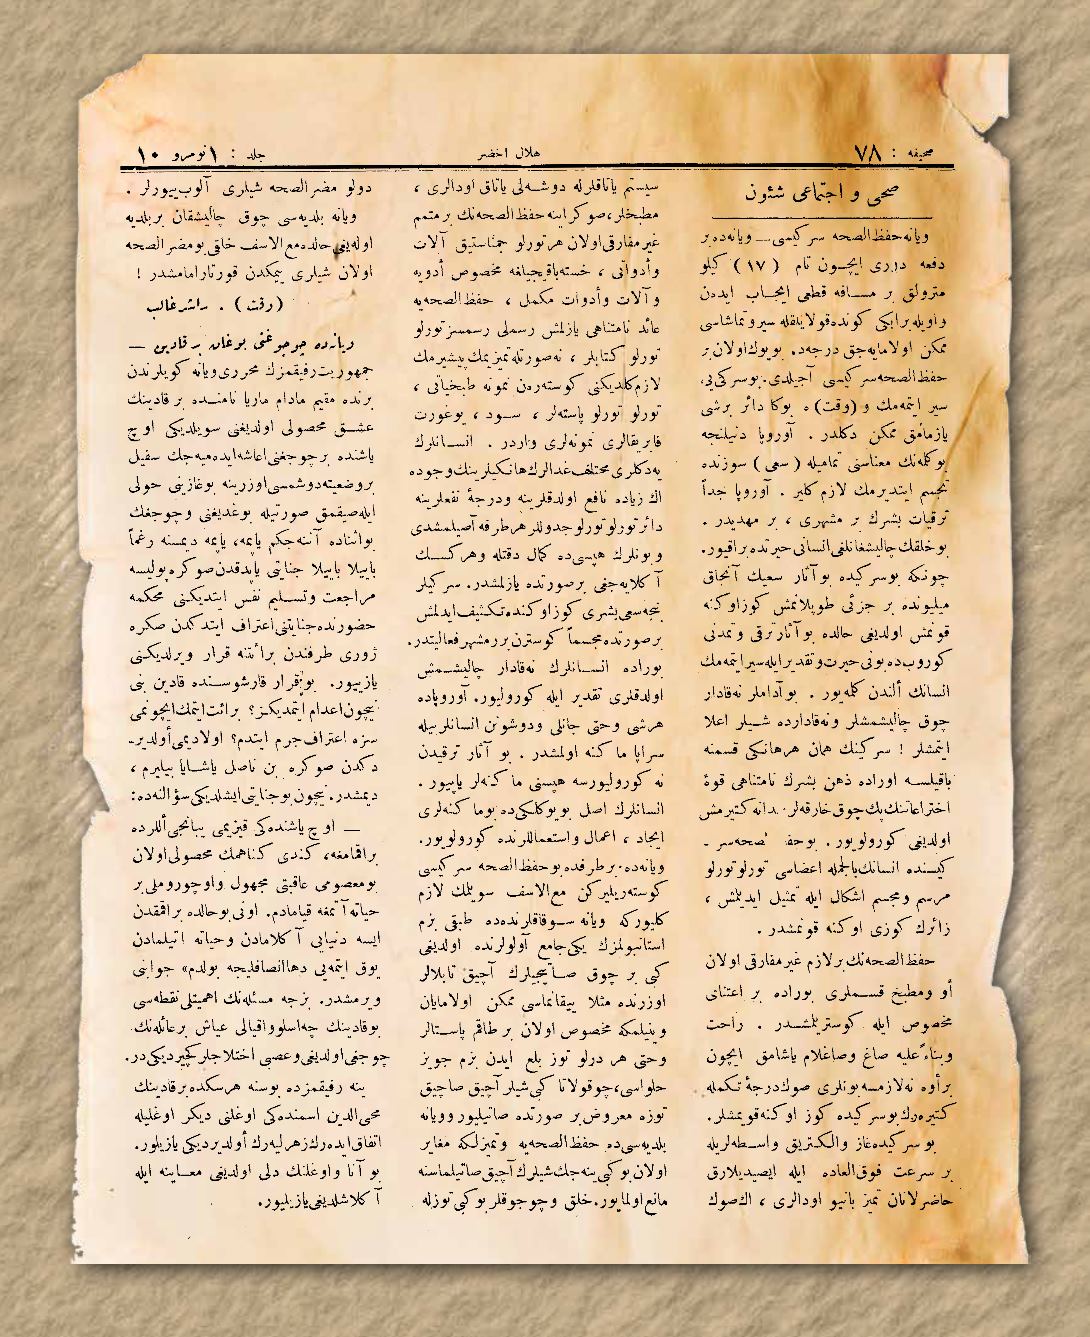 صحیفه : ٧٨
هلال اخضر
جلد : ١ نومرو ١٠
صحی و اجتماعی شئون
ویانه حفظ الصحه سرکیسی — ویانه‌ده بر
دفعه دوری ایچون تام ( ١٧ ) کیلو
مترولق بر مسافه قطعی ایجاب ایدەن
واویله برایکی کونده قولایلقله سیر و تماشاسی
ممکن اولامایه‌جق درجه‌ده. بویوک اولان بر
حفظ الصحه سرکیسی آچیلدی. بوسرکی‌یی،
سیر ایتمه‌مك و (وقت) ه بوکا دائر برشی
یازمامق ممکن دکلدر . آوروپا دنیلنجه
بوکله‌نك معناسنی تمامیله ( سعی ) سوزنده
تجسم ایتدیرمك لازم کلیر . آوروپا جداً
ترقیات بشرك بر مشهری ، بر مهدیدر .
بوخلقك چالیشغانلغی انسانی حیرتده براقیور.
چونکه بوسرکیده بو آثار سعیك آنجاق
میلیونده بر جزئی طوپلانمش کوز اوکنه
قونمش اولدیغی حالده بو آثار ترقی و تمدنی
کوروب‌ده بونی حیرت و تقدیر ایله سیر ایتمه‌مك
انسانك ألندن کلمه‌یور . بو آداملر نه‌قادار
چوق چالیشمشلر و نه‌قادارده شیلر اعلا
ایتمشلر ! سرکینك همان هرهانکی قسمنه
باقیلسه اوراده ذهن بشرك نامتناهی قوۀ
اختراعاتنك پك چوق خارقه‌لر میدانه کتیرمش
اولدیغی کورولویور . بوحفظ الصحه سر ـ
کیسنده انسانك بالجمله اعضاسی تورلو تورلو
مرسم و مجسم اشکال ایله تمثیل ایدیلمش ،
زائرك کوزی اوکنه قونمشدر .
حفظ الصحه‌نك بر لازم غیر مفارقی اولان
أو ومطبخ قسملری بوراده بر اعتنای
مخصوص ایله کوستریلمشدر . راحت
وبناءً علیه صاغ وصاغلام یاشامق ایچون
برأوه نه لازمسه بونلری صوك درجۀ تکمله
کتیره‌رك بوسرکیده کوز اوکنه قویمشلر.
بو سرکیده غاز والکتریق واسطه‌لریله
بر سرعت فوق العاده ایله ایصیدیلارق
حاضرلانان تمیز بانیو اودالری ، اك صوك
سیستم یاتاقلرله دوشه‌لی یاتاق اودالری ،
مطبخلر، صوکرا ینه حفظ الصحه‌نك بر متمم
غیر مفارقی اولان هرتورلو جمناستیق آلات
وأدواتی ، خسته‌باقیجیلغه مخصوص أدویه
و آلات وأدوات مکمل ، حفظ الصحه‌یه
عائد نامتناهی یازلمش رسملی رسمسز تورلو
تورلو کتابلر ، نه‌صورتله تمیز یمك پیشیرمك
لازم‌کلدیکنی کوسته‌ره‌ن نمونه طبخیاتی ،
تورلو تورلو پاسته‌لر ، سود ، یوغورت
فابریقالری نمونه‌لری واردر . انسانلرك
یه‌دکلری مختلف غدالرك هانکیلرینك وجوده
اك زیاده نافع اولدقلرینه ودرجۀ نفعلرینه
دائر تورلو تورلو جدوللر هر طرفه آصیلمشدی
و بونلرك هپسی‌ده کمال دقتله و هرکسك
آکلایه‌جغی بر صورتده یازلمشدر. سرکیلر
نیجه سعی بشری کوز اوکنده تکثیف ایدلمش
بر صورتده مجسماً کوسترن بر ر مشهر فعالیتدر.
بوراده انسانلرك نه‌قادار چالیشمش
اولدقلری تقدیر ایله کورولیور. آوروپاده
هرشی وحتی جانلی ودوشونن انسانلر بیله
سراپا ماکنه اولمشدر . بو آثار ترقیدن
نه کورولیورسه هپسنی ماکنه‌لر یاپیور .
انسانلرك اصل بویوکلکی‌ده بوماکنه‌لری
ایجاد ، اعمال واستعماللرنده کورولویور.
ویانه‌ده بر طرفده بوحفظ الصحه سرکیسی
کوسته‌ریلیرکن مع‌الاسف سویلمك لازم
کلیورکه ویانه سوقاقلرنده‌ده طبقی بزم
استانبولمزك یکی‌جامع آولولرنده اولدیغی
کبی بر چوق صاتیجیلرك آچیق تابلالر
اوزرنده مثلا ییقانماسی ممکن اولامایان
وینیلمکه مخصوص اولان بر طاقم پاستالر
وحتی هر درلو توز بلع ایدن بزم جویز
حلواسی، چوقولاتا کبی شیلر آچیق صاچیق
توزه معروض بر صورتده صاتیلیور وویانه
بلدیه‌سی‌ده حفظ الصحه‌یه وتمیزلکه مغایر
اولان بوکبی ینه‌جك شیلرك آچیق صاتیلماسنه
مانع اولمایور. خلق وچوجوقلر بوکبی توزله
دولو مضر الصحه شیلری آلوب ییورلر .
ویانه بلدیه‌سی چوق چالیشقان بر بلدیه
اولدیغی حالده مع الاسف خلقی بومضر الصحه
اولان شیلری ییمکدن قورتارامامشدر !
(رقت) . مباشر غالب
ویانه‌ده چوجوغنی بوغان بر قادین —
جمهوریت رفیقمزك محرری ویانه کویلرندن
برنده مقیم مادام ماریا نامنده بر قادینك
عشق محصولی اولدیغنی سویلدیکی اوچ
یاشنده بر چوجغنی اعاشه ایده‌میه‌جك سفیل
بر وضعیته دوشمسی اوزرینه بوغازینی حولی
ایله صیقمق صورتیله بوغدیغنی وچوجغك
بواثناده آننه‌جکم یاپمه، یاپمه دیمسنه رغماً
باییلا باییلا جنایتی یاپدقدن صوکره پولیسه
مراجعت وتسلیم نفس ایتدیکنی محکمه
حضورنده جنایتنی اعتراف ایتدکدن صکره
ژوری طرفندن برائتنه قرار ویرلدیکنی
یازییور. بوقرار قارشوسنده قادین بنی
نیچون اعدام ایتمدیکز؟ برائت ایتمك ایچونمی
سزه اعتراف جرم ایتدم؟ اولادیمی أولدیر-
دکدن صوکره بن ناصل یاشایا بیلیرم ،
دیمشدر. نیچون بوجنایتی ایشلدیکی سؤالنه‌ده:
— اوچ یاشنده‌کی قیزیمی یبانجی أللرده
براقمامغه، کندی کناهمك محصولی اولان
بومعصومی عاقبتی مجهول واوچوروملی بر
حیاته آتمغه قیامادم. اونی بوحالده براقمقدن
ایسه دنیایی آکلامادن وحیاته اتیلمادن
یوق ایتمه‌یی دها انصافلیجه بولدم» جوابنی
ویرمشدر. بزجه مسئله‌نك اهمیتلی نقطه‌سی
بوقادینك چه‌اسلوواقیالی عیاش بر عائله‌نك
چوجغی اولدیغی وعصبی اختلاجلر کچیردیکی در.
ینه رفیقمزده بوسنه هرسکده بر قادینك
محی‌الدین اسمنده‌کی اوغلنی دیکر اوغلیله
اتفاق ایده‌رك زهرلیه‌رك أولدیردیکی یازیلور.
بو آنا و اوغلنك دلی اولدیغی معاینه ایله
آکلاشلدیغی یازیلیور.